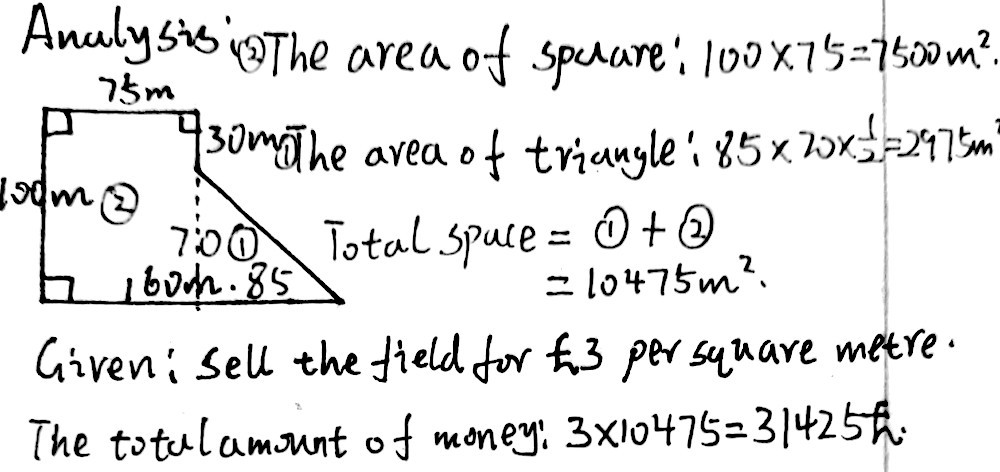 Analysis: ②The area of square: 100×75=7500m².
75m
30m ①The area of triangle: 85×70×1/2=2975m²
100m ②
70 ① Total space = ①+②
160m. 85 = 10475m².
Given: sell the field for £3 per square metre.
The total amount of money: 3×10475=31425£.